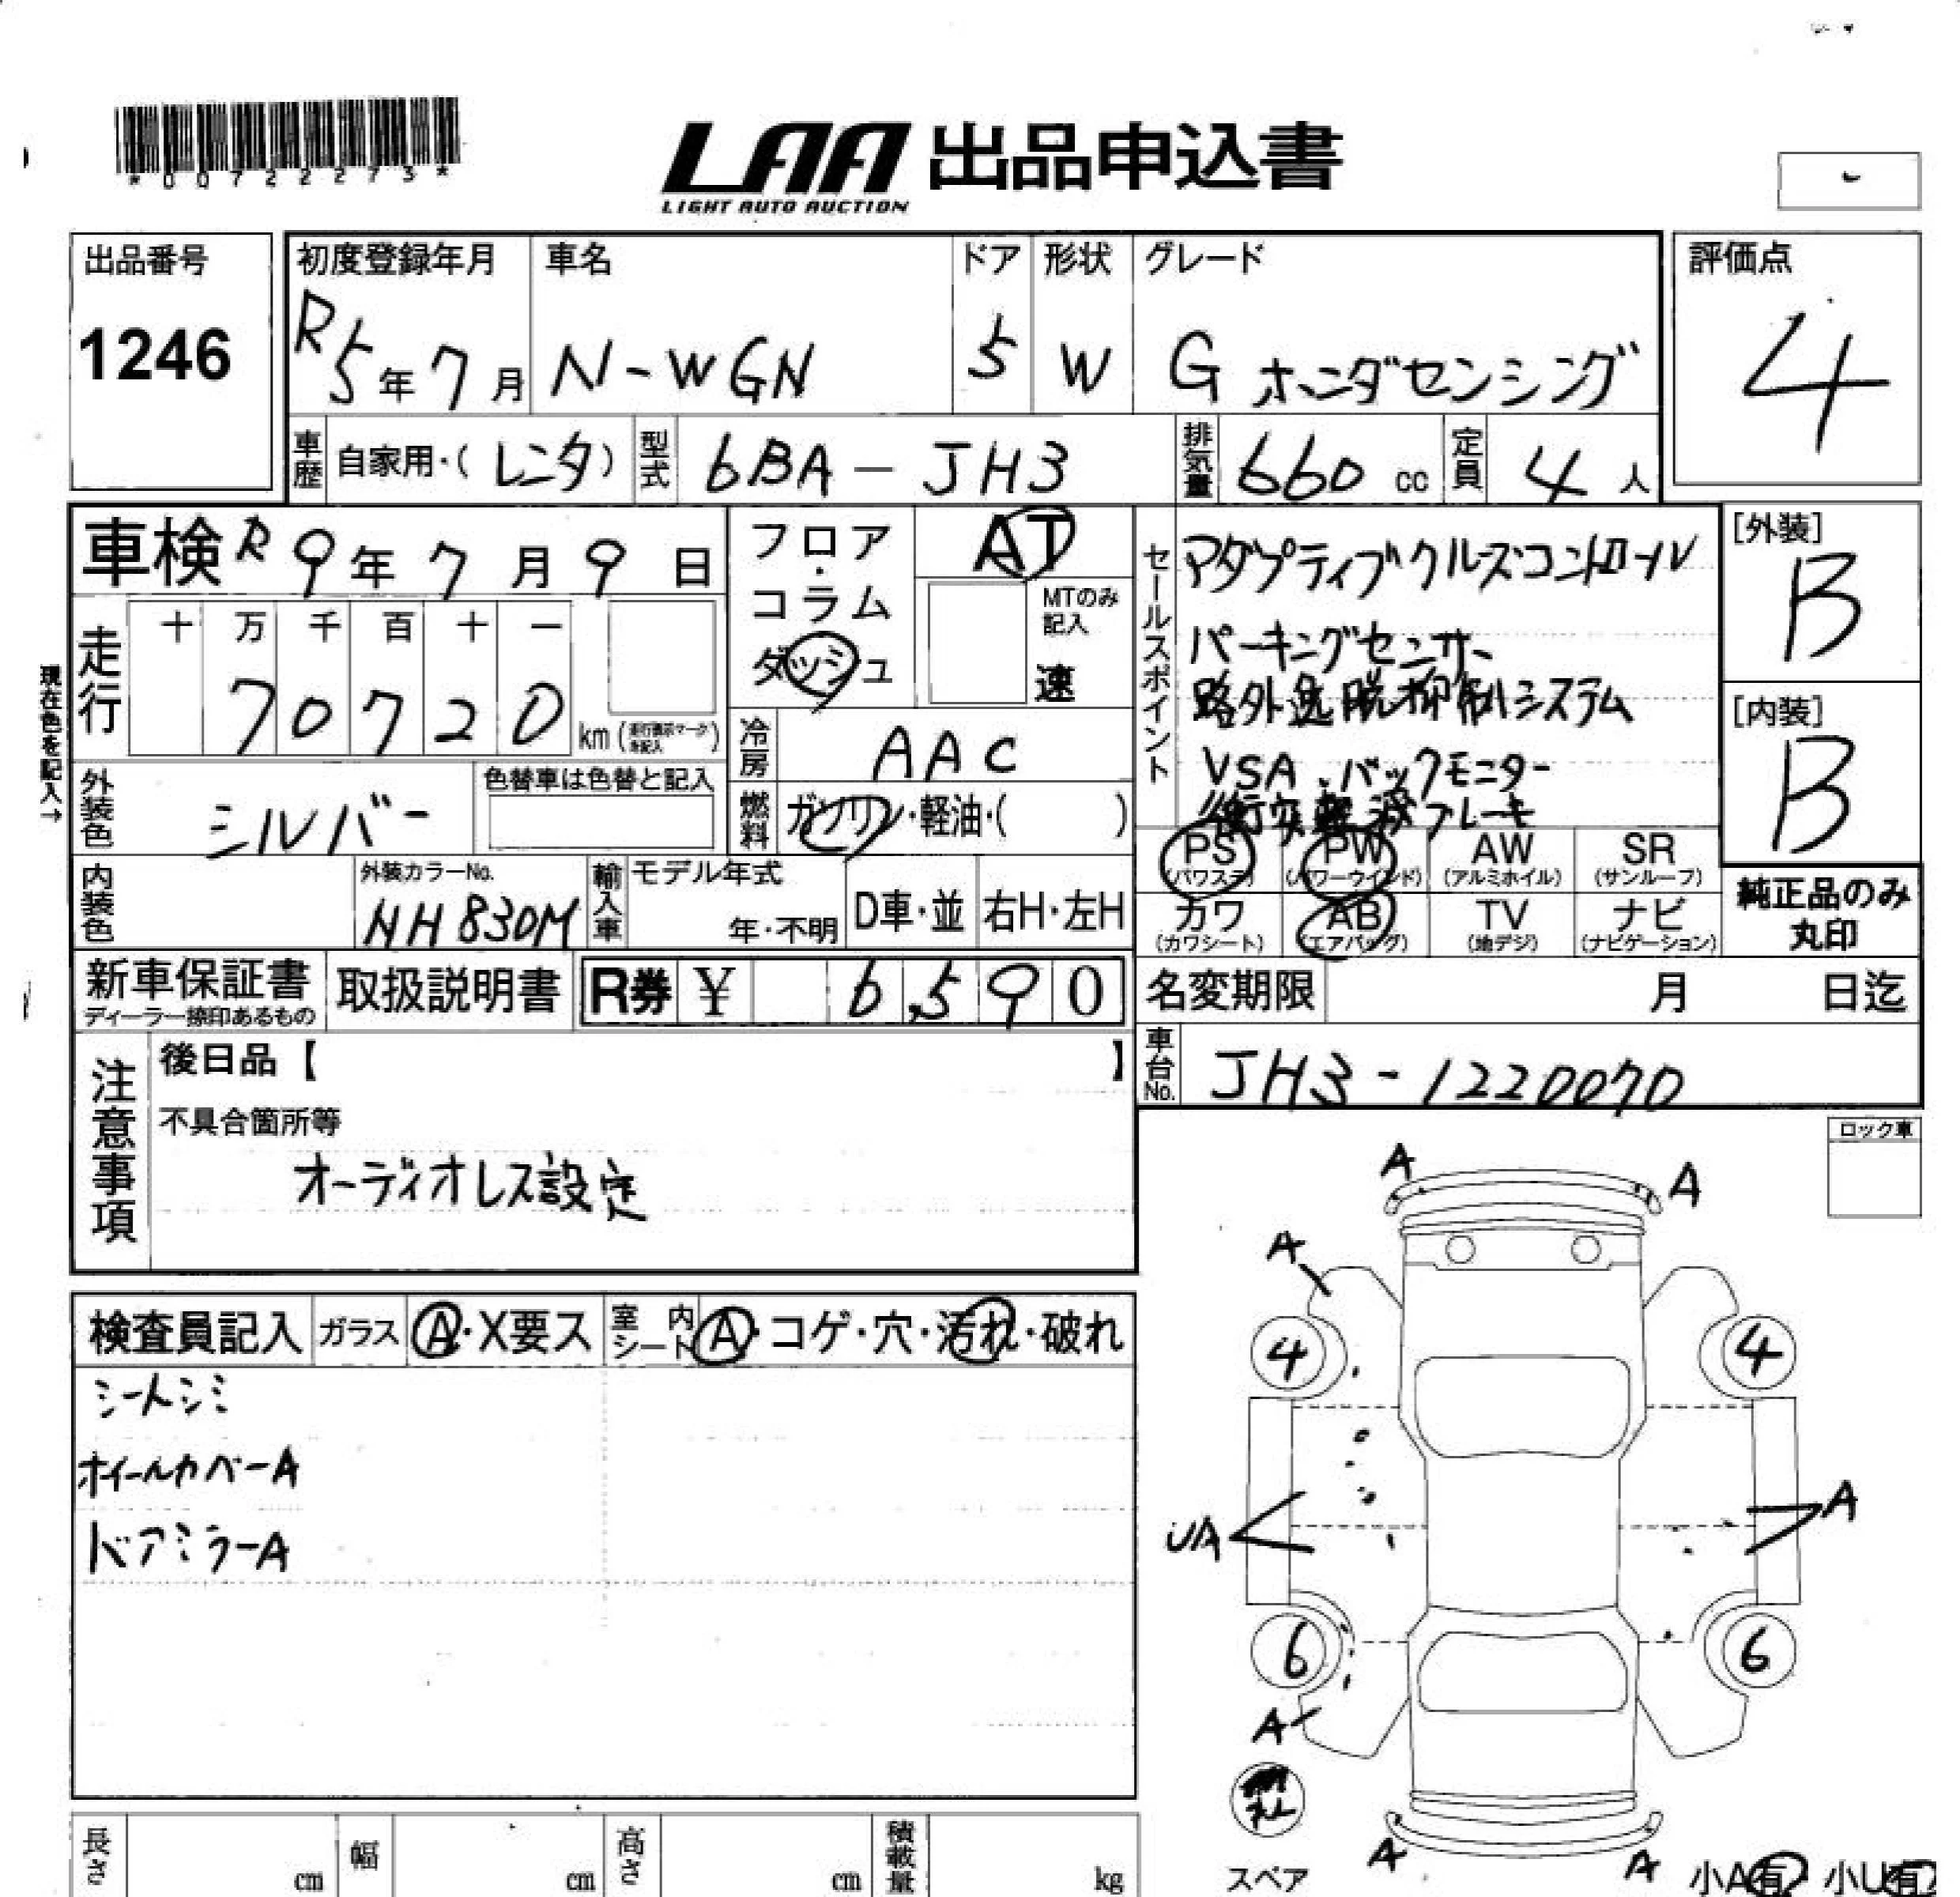 *00722273*
LAA 出品申込書
LIGHT AUTO AUCTION
出品番号
1246
初度登録年月
R5年7月
車名
N-WGN
ドア
5
形状
W
グレード
G ホンダセンシング
評価点
4
車歴 自家用・(レンタ)
型式 6BA-JH3
排気量 660 cc
定員 4人
車検 R9年7月9日
フロア・コラム
ダッシュ
AT
MTのみ記入
速
走行
十 万 千 百 十 一
7 0 7 2 0 km
現在色を記入→
冷房 AAC
外装色 シルバー
色替車は色替と記入
燃料 ガソリン・軽油・( )
セールスポイント
アダプティブクルーズコントロール
パーキングセンサー
路外逸脱抑制システム
VSA、バックモニター
衝突軽減ブレーキ
[外装]
B
[内装]
B
内装色
外装カラーNo.
NH830M
輸入車
モデル年式
年・不明
D車・並
右H・左H
PS (パワステ)
PW (パワーウインド)
AW (アルミホイル)
SR (サンルーフ)
カワ (カワシート)
AB (エアバッグ)
TV (地デジ)
ナビ (ナビゲーション)
純正品のみ
丸印
新車保証書
ディーラー捺印あるもの
取扱説明書
R券 ¥ 6,590
名変期限 月 日迄
車台No. JH3-1220070
注意事項
後日品【 】
不具合箇所等
オーディオレス設定
ロック車
検査員記入
ガラス A・X要ス
室内シート A・コゲ・穴・汚れ・破れ
シートシミ
ホイールカバーA
ドアミラーA
A
A
A
4
4
UA
A
6
6
A
A
A
スペア
小A有 小U有
長さ cm
幅 cm
高さ cm
積載量 kg